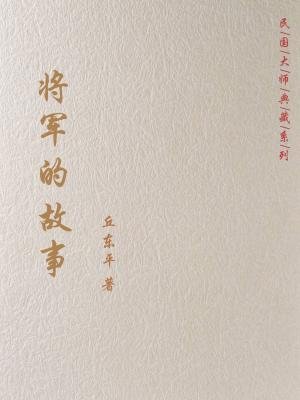 民|国|大|师|典|藏|系|列
将军的故事
丘东平著